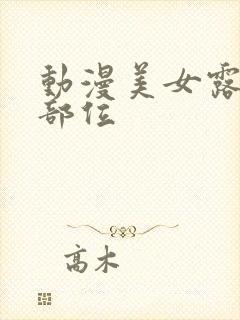 動漫美女露
部位
高木